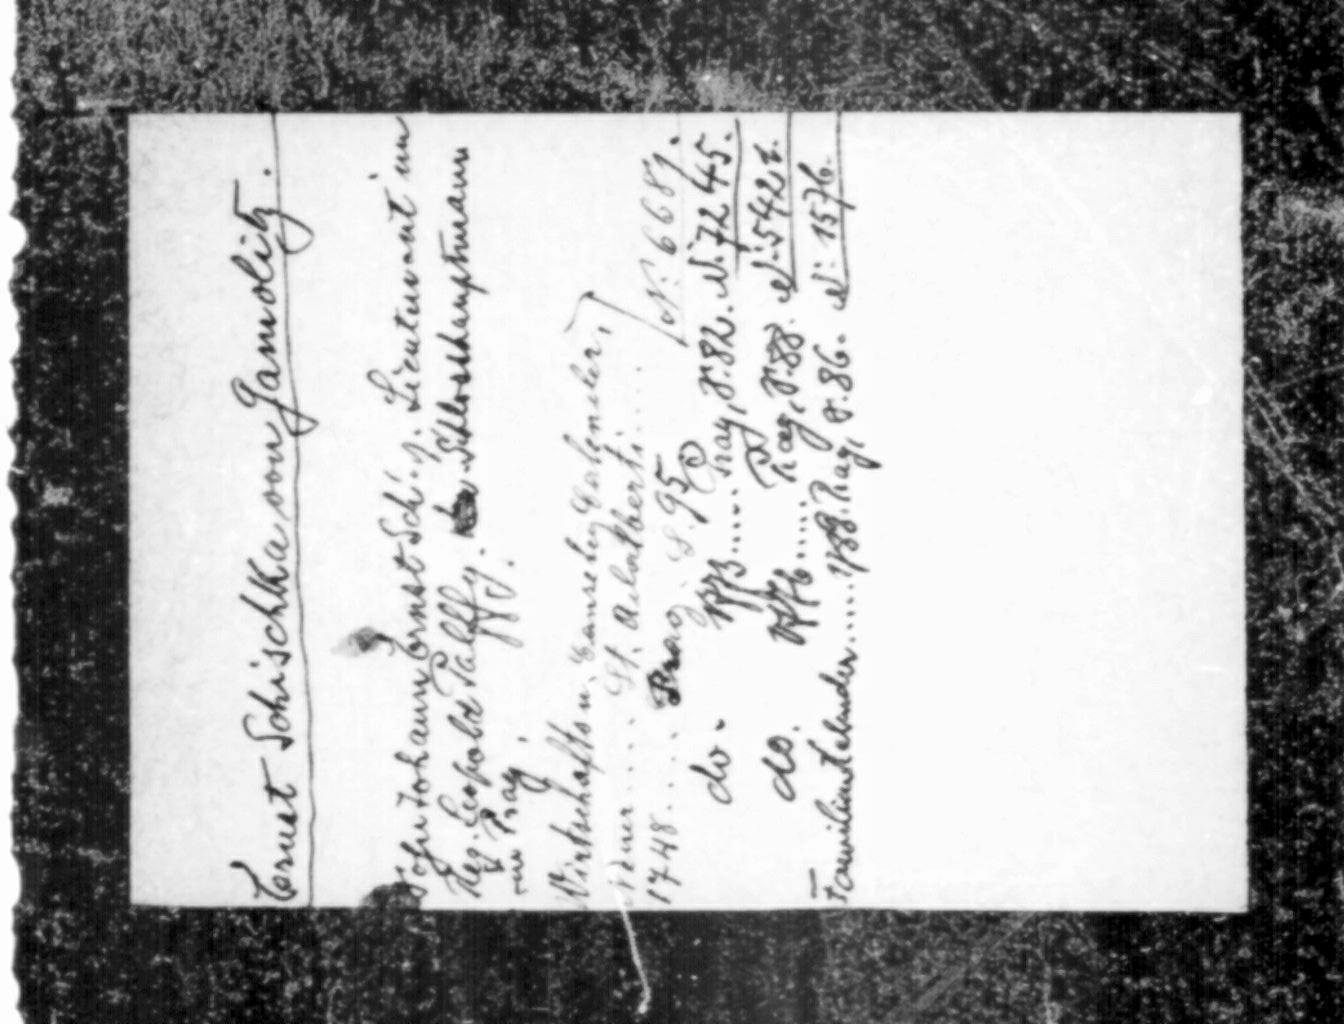 Ernst Schischka von Gamolitz.
Sohn Johann Ernst Sch. g. Lieutenant im
Reg. Leopold Palffy. Schlosshauptmann
in Prag.
Wirtschafts u. Canzeley Calender,
Neuer..... St. Adalberti.....
1748..... Prag. S. 95 N. 6687.
do. 1773..... Prag, S. 82. N. 7245.
do. 1776..... Prag, S. 88. N. 5428.
Familienkalender..... Prag, S. 86. N. 1576.